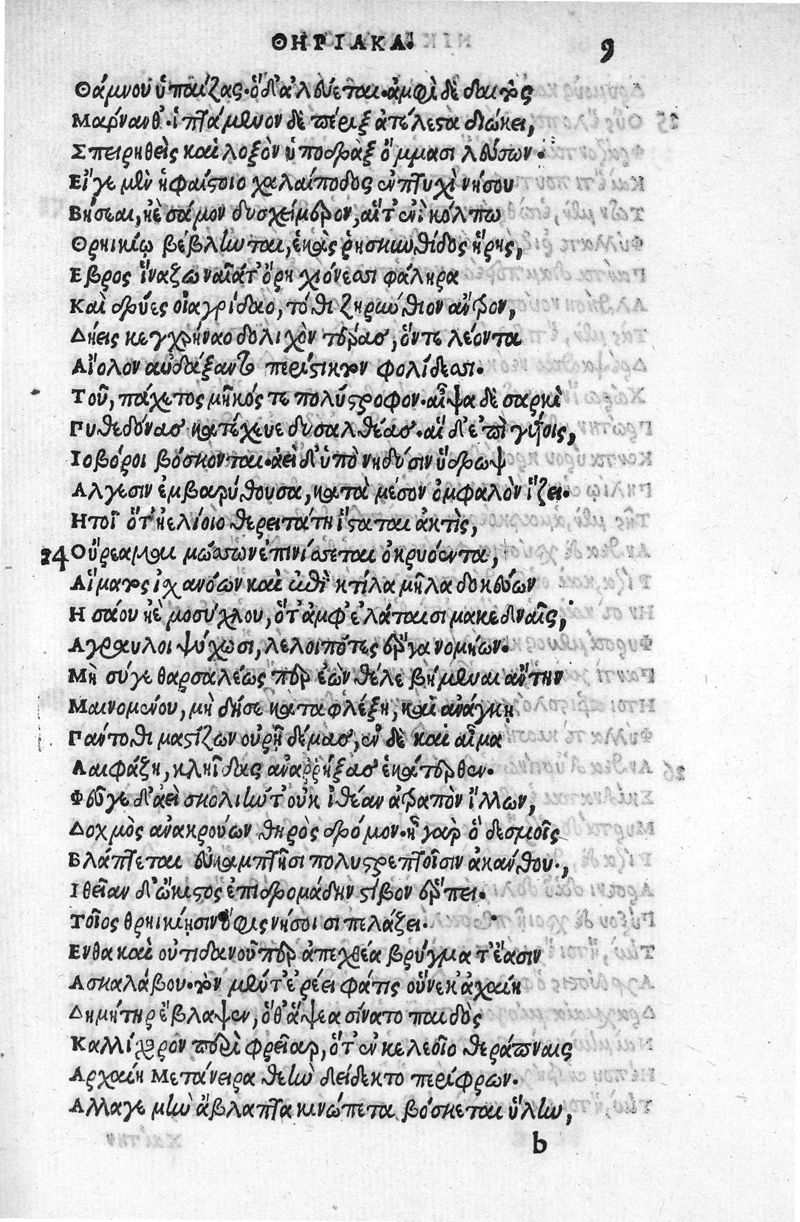 ΘΗΡΙΑΚΑ. 9
Θάμνου ὑπαΐξας· ὅδ' ἀλύεται· ἀμφὶ δὲ δαιτὸς
Μαρνανθ' ἱπτάμενον δὲ πέριξ ἀτέλεστα διώκει,
Σπειρηθεὶς καὶ λοξὸν ὑποδρὰξ ὄμμασι λεύσων.
Εἴγε μὲν ἡφαίστοιο χαλαίποδος ἐν πτυχὶ νήσου
Βήσεαι, ἠὲ σάμον δυσχείμερον, αἵτ' ἐνὶ κόλπῳ
Θρηικίῳ βέβληνται, ἑκὰς ῥησκυνθίδος ἥρης,
Εβρος ἵναζωναῖάτ' ὄρη χιόνεσσι φάληρα
Καὶ δρύες οἰαγρίδαο, τόθι ζηρύνθιον ἄντρον,
Δήεις κεγχρήναο δολιχὸν τέρας, ὅντε λέοντα
Αἴολον αὐδάξαντο περίστικτον φολίδεσσι.
Τοῦ, πάχετος μῆκός τε πολύστροφον· αἶψα δὲ σαρκὶ
Πυθεδόνας κατέχευε δυσαλθέας· αἱ δ' ἐπὶ γυίοις,
Ιοβόροι βόσκονται· ἀεὶ δ' ὑπὸ νηδύσιν ὕδρωψ
Αλγεσιν ἐμβαρύθουσα, κατὰ μέσον ὀμφαλὸν ἵζει.
Ητοῖ ὅτ' ἠελίοιο θερειτάτη ἵσταται ἀκτὶς,
24 Οὔρεα μαιμώσσων ἐπινίσσεται ὀκρυόεντα,
Αἵματος ἰχανόων καὶ ἐπὶ κτίλα μῆλα δοκεύων
Η σάου ἠὲ μοσύχλου, ὅτ' ἀμφ' ἐλάταισι μακεδναῖς,
Αγραυλοι ψύχωσι, λελοιπότες ἔργα νομήων.
Μὴ σύγε θαρσαλέως πὲρ ἐὼν θέλε βήμεναι αὔτην
Μαινομένου, μὴ δήσε καταφλέξῃ, καὶ ἀνάγκῃ
Πάντοθι μαστίζων οὐρῇ δέμας, ἐν δὲ καὶ αἷμα
Λαιφάξῃ, κληῖδας ἀναρρήξας ἑκάτερθεν.
Φεῦγε δ' ἀεὶ σκολιὴν τ' οὐκ ἰθέαν ἀτραπὸν ἵλλων,
Δοχμὸς ἀνακρούων θηρὸς δρόμον· ἢ γὰρ ὁ δεσμοῖς
Βλάπτεται ἐν καμπτῇσι πολυστρεπτοῖσιν ἀκάνθου·,
Ιθεῖαν δ' ὤκιστος ἐπιδρομάδην στίβον ἕρπει.
Τοῖος θρηικίησιν ὄφις νήσοισι πελάζει.
Ενθα καὶ οὐτιδανοῦ πὲρ ἀπεχθέα βρύγματ' ἔασιν
Ασκαλάβου· τὸν μέντ' ἐρέει φάτις οὕνεκ' ἀχαιὴ
Δημήτηρ ἔβλαψεν, ὅθ' ἅψεα σίνατο παιδὸς
Καλλίχορον περὶ φρεῖαρ, ὅτ' ἐν κελεοῖο θεράπναις
Αρχαίη Μετάνειρα θεὴν δείδεκτο περίφρων.
Αλλαγε μὴν ἄβλαπτα κινώπετα βόσκεται ὕλην,
b